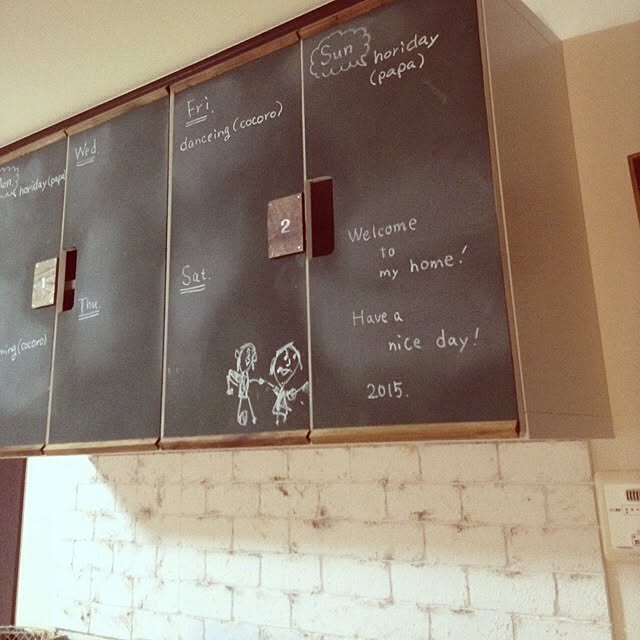 Mon
horiday(papa
ming(cocoro)
Wed
Thu
Fri.
danceing(cocoro)
Sat.
2
Sun
horiday
(papa)
Welcome
to
my home!
Have a
nice day!
2015.